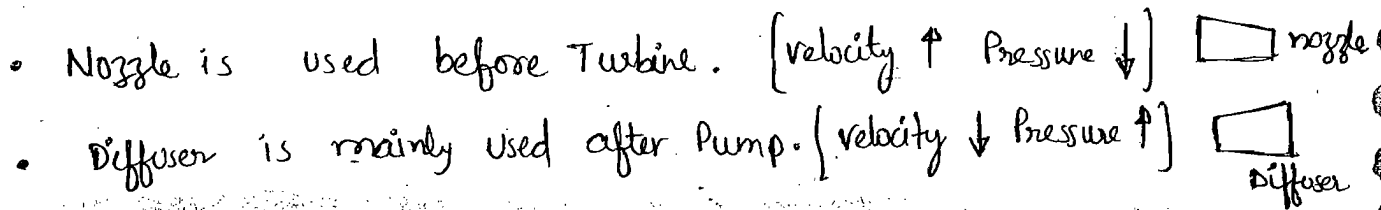 • Nozzle is used before Turbine. [velocity ↑ Pressure ↓] nozzle
• Diffuser is mainly used after Pump. [velocity ↓ Pressure ↑]
Diffuser